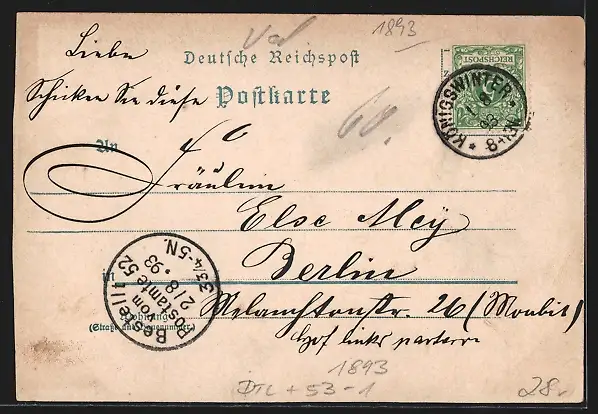 1893
Liebe
Deutsche Reichspost
Schicken Sie diese
Postkarte
REICHSPOST
KÖNIGSWINTER
8
93
8-9N
60.
An
Fräulein
Else Mey
Berlin
in
Melanchtonstr. 26 (Moabit)
Wohnung
(Straße und Hausnummer)
Hof links parterre
Bestellt
vom
Postamte 52
2/8 93
3¾-5N.
1893
DTL + 53-1
28.-